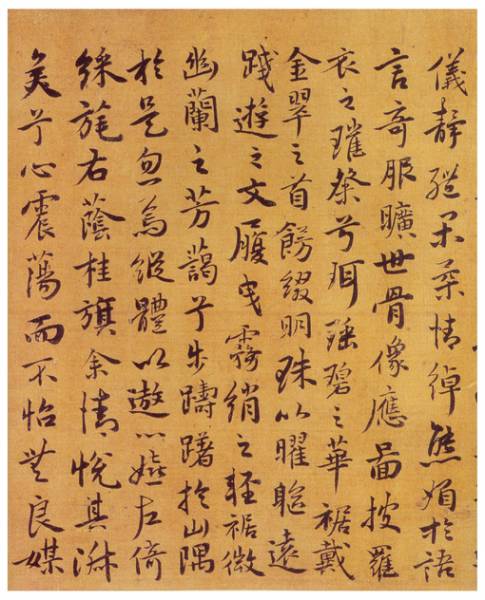 儀靜體閑柔情綽態媚於語
言奇服曠世骨像應圖披羅
衣之璀粲兮珥瑤碧之華裾戴
金翠之首飾綴明珠以曜軀遠
踐遊之文履曳霧綃之輕裾微
幽蘭之芳藹兮步躊躇於山隅
於是忽焉縱體以遨以嬉左倚
綵旄右蔭桂旗余情悅其淑
美兮心震蕩而不怡無良媒